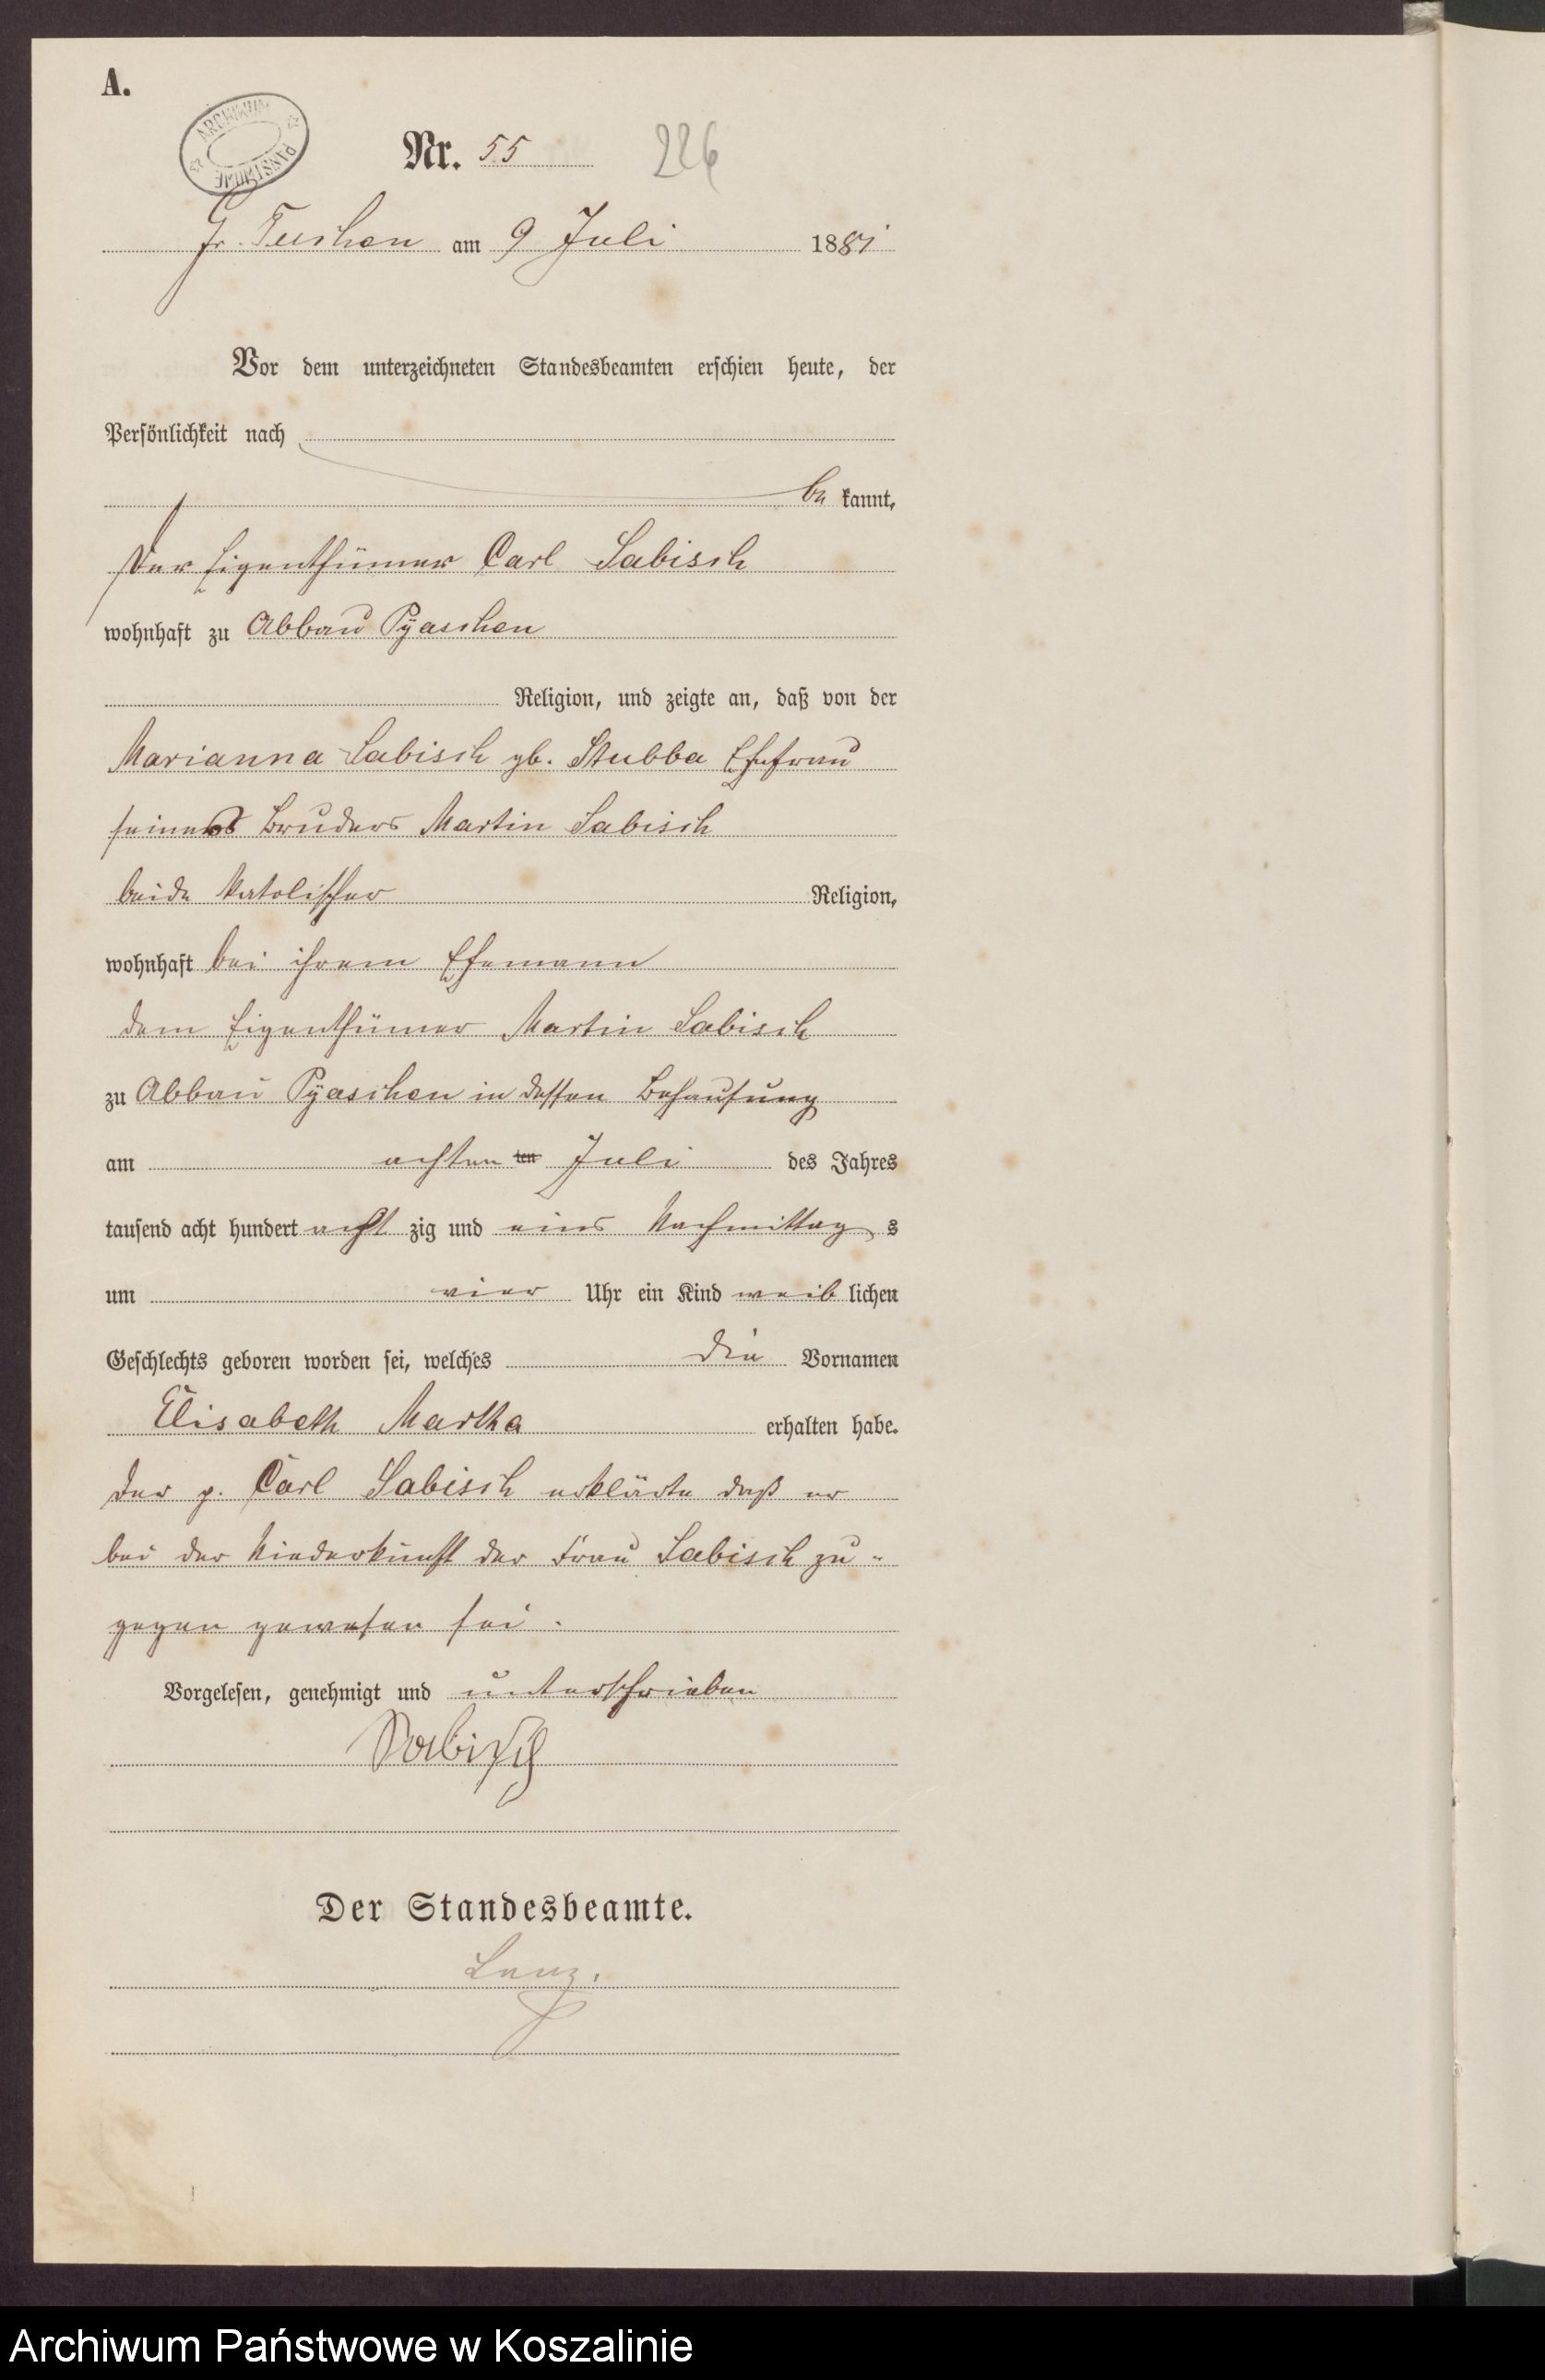 A.
ARCHIWUM PAŃSTWOWE
Nr. 55 226
Gr. Tuchen am 9 Juli 1881
Vor dem unterzeichneten Standesbeamten erschien heute, der
Persönlichkeit nach
be kannt,
Der Eigenthümer Carl Sabisch
wohnhaft zu Abbau Pyaschen
Religion, und zeigte an, daß von der
Marianna Sabisch gb. Stubba Ehefrau
seines Bruders Martin Sabisch
beide katolischer Religion,
wohnhaft bei ihrem Ehemann
dem Eigenthümer Martin Sabisch
zu Abbau Pyaschen in dessen Behausung
am achten ten Juli des Jahres
tausend acht hundert acht zig und eins Nachmittag s
um vier Uhr ein Kind weib lichen
Geschlechts geboren worden sei, welches die Vornamen
Elisabeth Martha erhalten habe.
Der p. Carl Sabisch erklärte daß er
bei der Niederkunft der Frau Sabisch zu-
gegen gewesen sei.
Vorgelesen, genehmigt und unterschrieben
Sabisch
Der Standesbeamte.
Archiwum Państwowe w Koszalinie